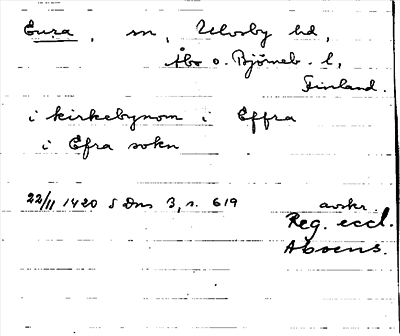 Eura, sn, Ulvsby hd,
Åbo o. Björneb. l,
Finland.
i kirkebynom i Effra
i Efra sokn
22/11 1420 SDns 3, s. 619 avskr.
Reg. eccl.
Aboens.